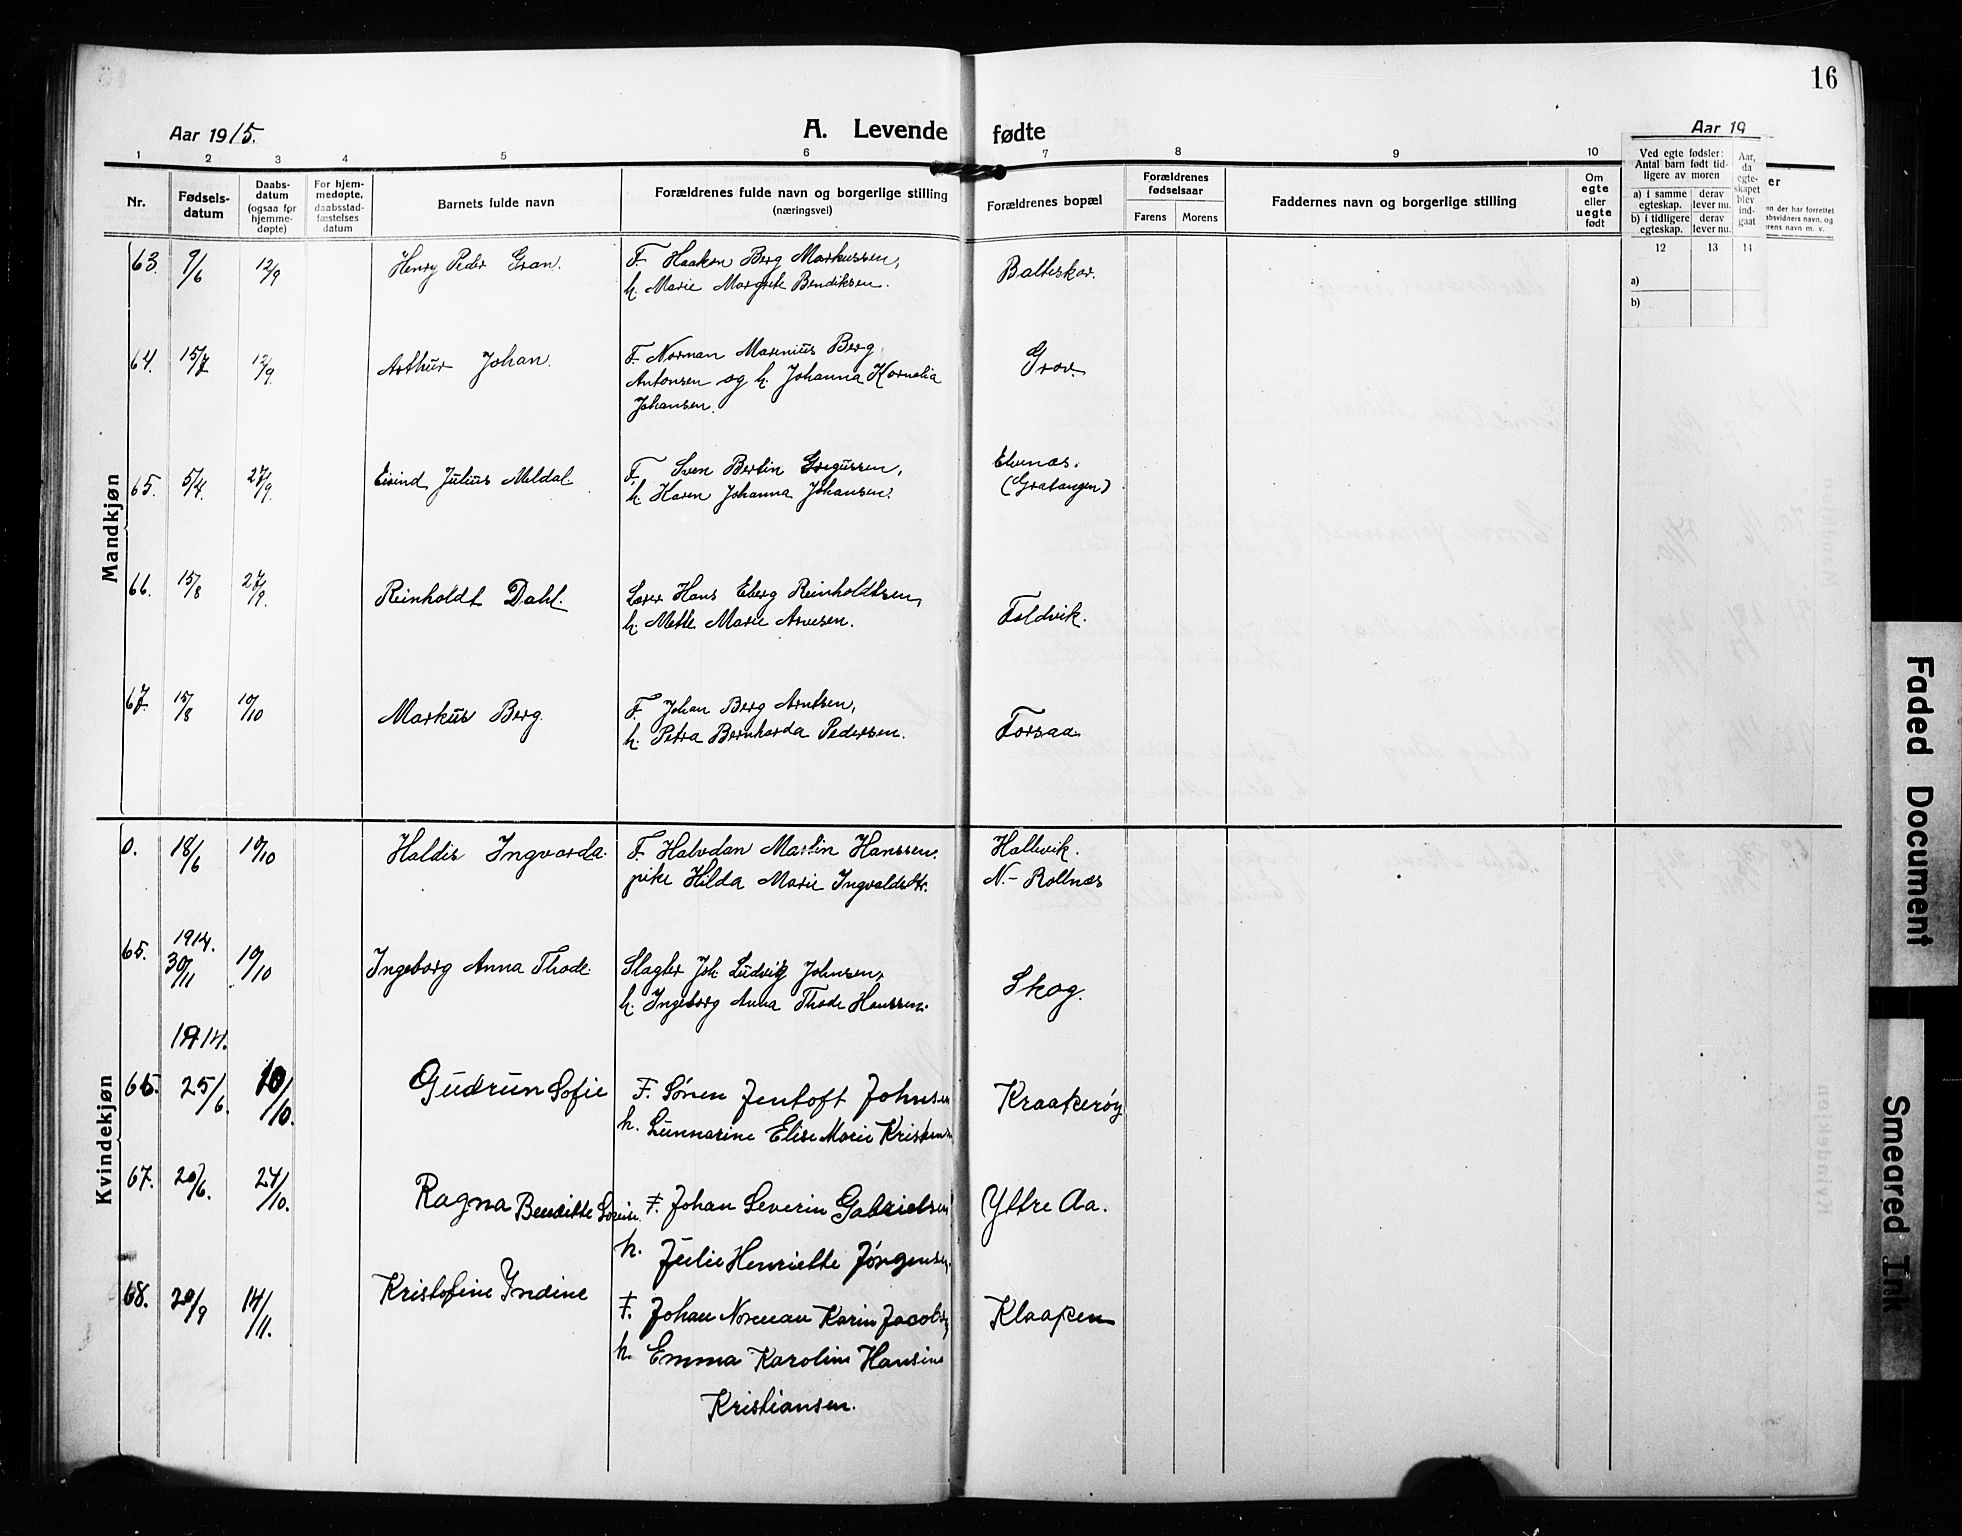 16
Aar 1915.
A. Levende fødte
Aar 19
1 2 3 4 5 6 7 8 9 10 12 13 14
Nr.
Fødsels-
datum
Daabs-
datum
(ogsaa for
hjemme-
døpte)
For hjem-
medøpte,
daabsstad-
fæstelses
datum
Barnets fulde navn
Forældrenes fulde navn og borgerlige stilling
(næringsvei)
Forældrenes bopæl
Forældrenes
fødselsaar
Farens Morens
Faddernes navn og borgerlige stilling
Om
egte
eller
uegte
født
Ved egte fødsler:
Antal barn født tid-
ligere av moren
a) i samme
egteskap.
derav
lever nu.
b) i tidligere
egteskap.
derav
lever nu.
Aar,
da
egte-
skapet
blev
ind-
gaat
a)
b)
Mandkjøn
63. 9/6 12/9 Henry Peder Gran. F. Haakon Berg Markussen, Balteskar.
h. Marie Margrete Bendiksen.
64. 15/7 12/9. Arthur Johan. F. Norman Marenius Berg Grov.
Antonsen og h. Johanna Kornelia
Johansen.
65. 5/4. 27/9. Eivind Julius Meldal F. Sven Bertin Gregussen, Elvenæs.
h. Karen Johanna Johansen. (Gratangen)
66. 15/8 27/9. Reinholdt Dahl. Lærer Hans Eberg Reinholdtsen, Foldvik.
h. Mette Marie Arvesen.
67. 15/8 10/10 Markus Berg. F. Johan Berg Arntsen, Forsaa
h. Petra Bernharda Pedersen.
Kvindekjøn
0. 18/6 10/10 Haldis Ingvarda. F. Halvdan Martin Hanssen. Hallvik.
pike Hilda Marie Ingvaldsdtr. N.- Rollnæs
65. 1914. 30/11 10/10 Ingeborg Anna Thode. Slagter Joh. Ludvig Johnsen, Skog.
h. Ingeborg Anna Thode Hanssen.
1914.
66. 25/6. 10/10. Gudrun Sofie F. Søren Jentoft Johnsen Kraakerøy
h. Gunnarine Elise Marie
67. 20/6. 24/10. Ragna Benditte F. Johan Severin Gabrielsen Yttre Aa.
h. Julie Henriette Jørgensen.
68. 20/9 14/11. Kristofine Indine F. Johan Norman Karin Klaapen
h. Emma Karoline Hansine
Kristiansen.
Faded Document
Smeared Ink